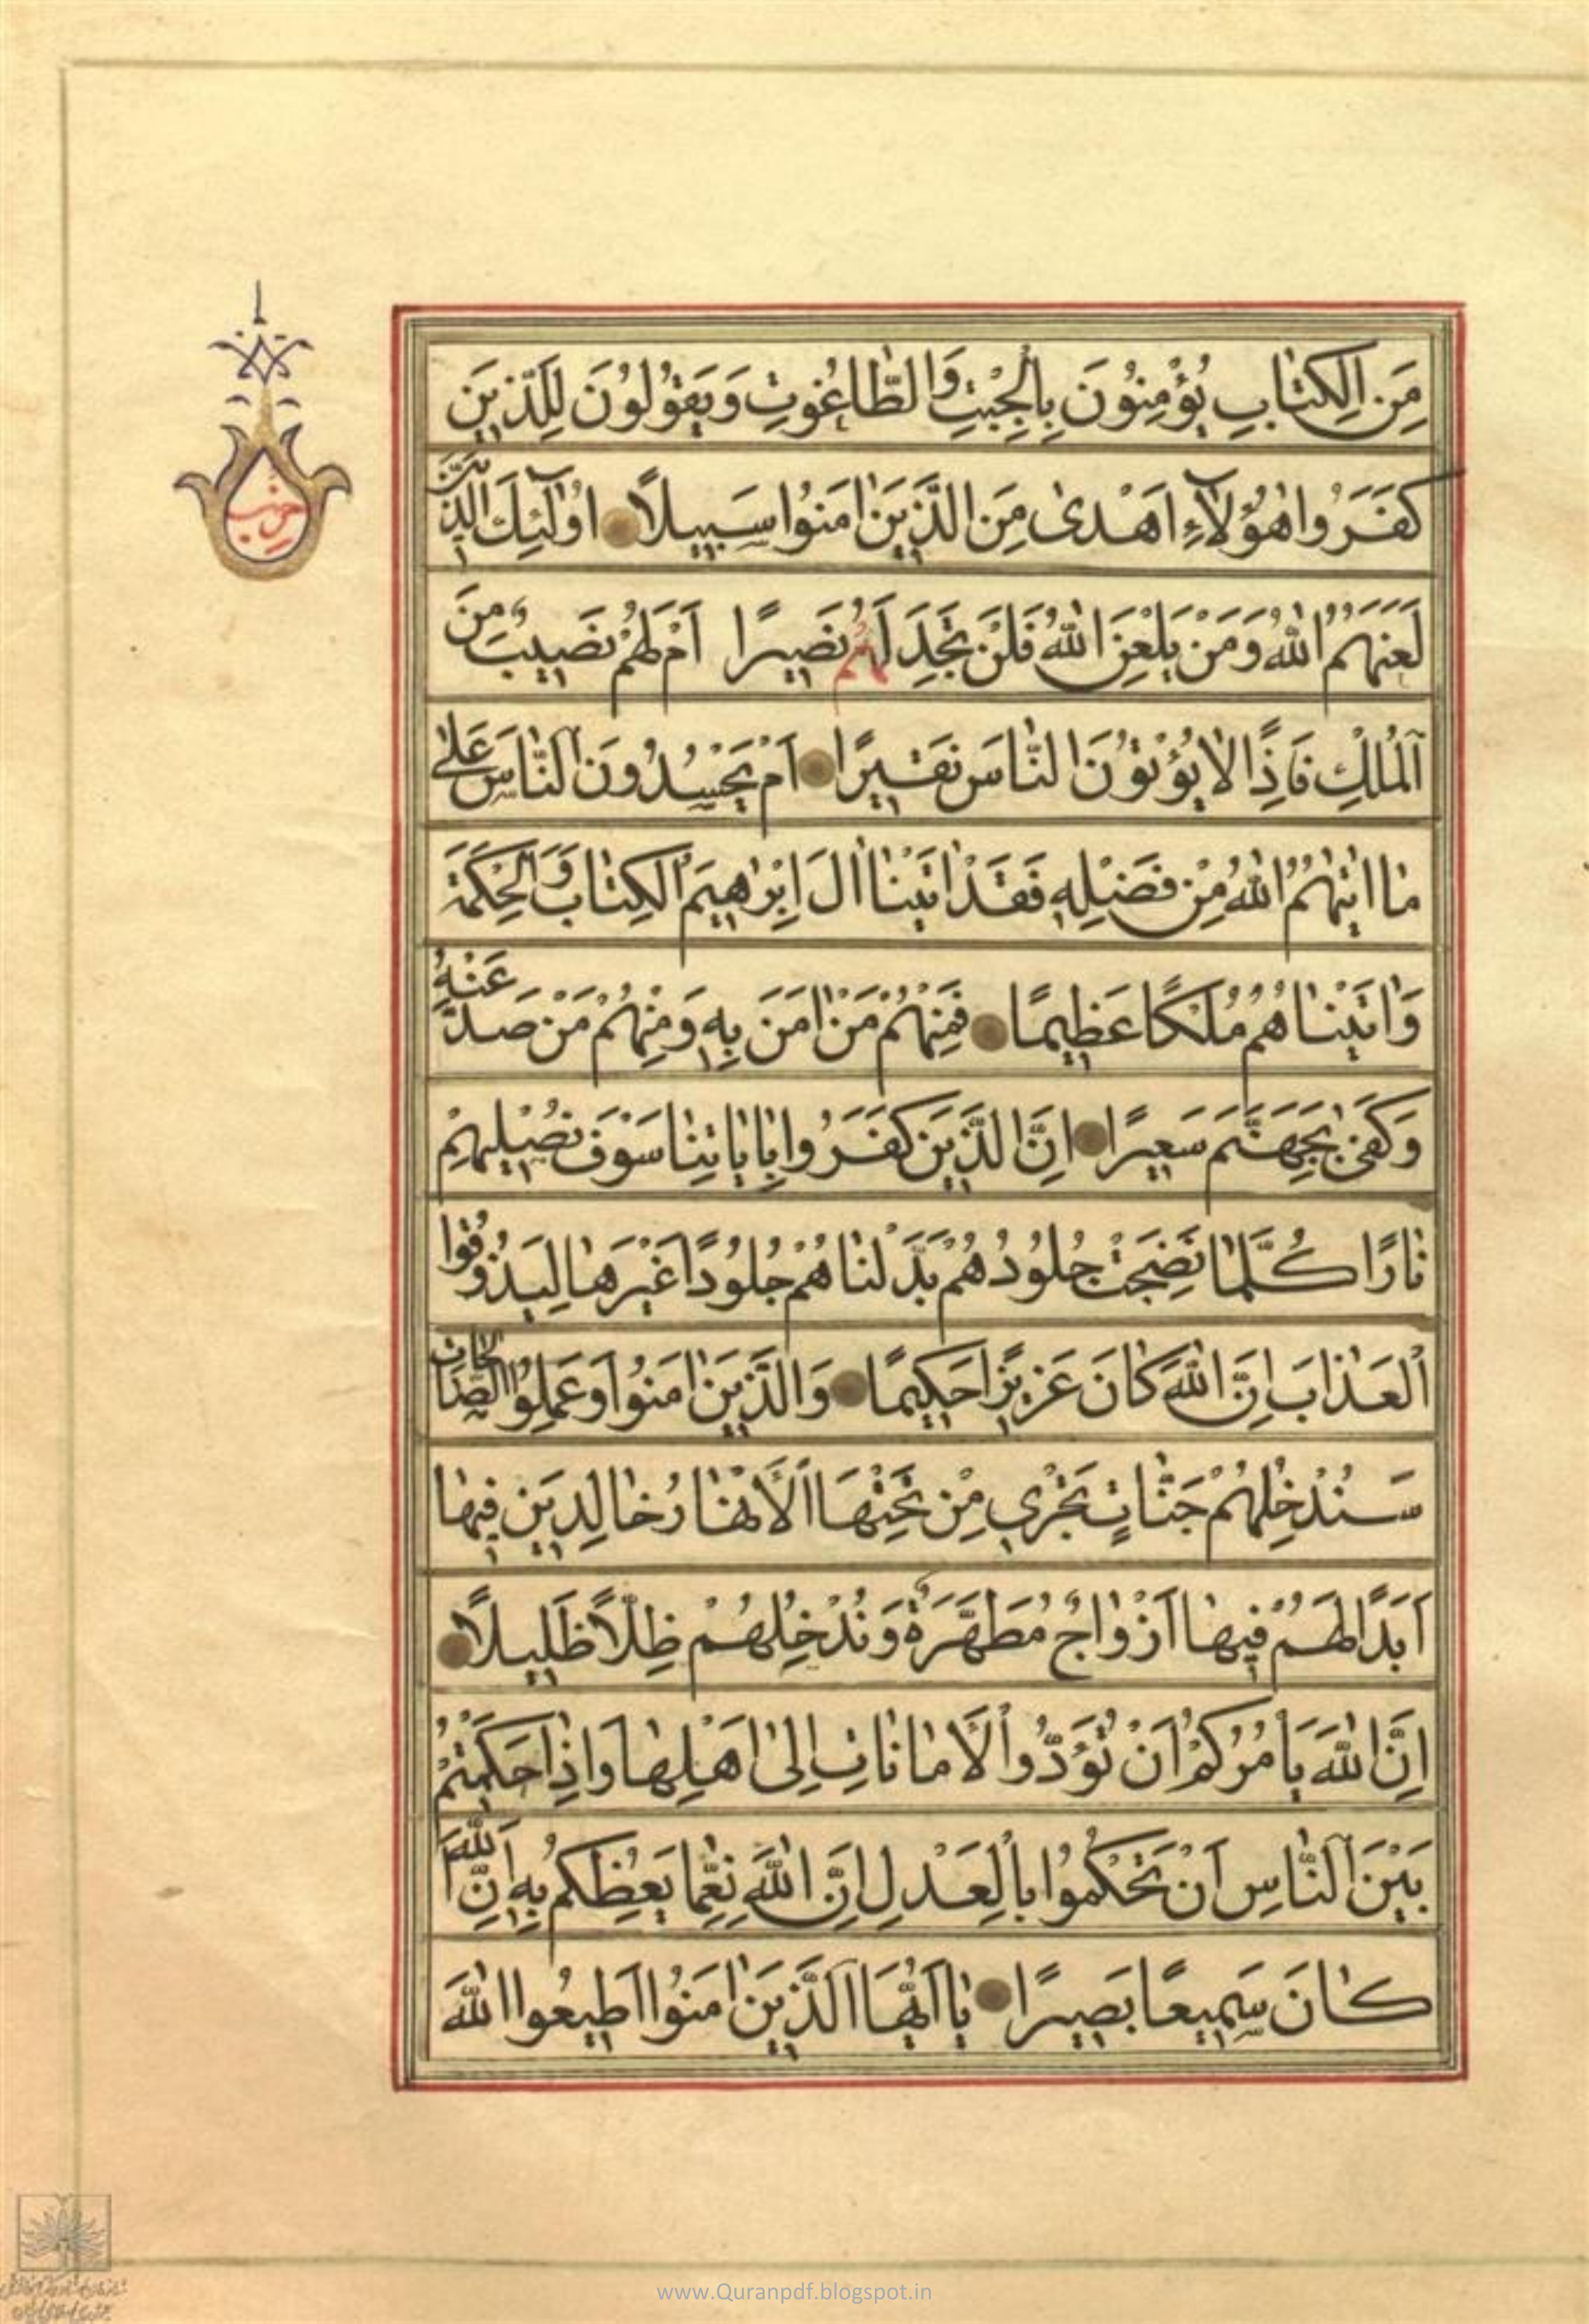 مِنَ الْكِتٰابِ يُؤْمِنُونَ بِالْجِبْتِ وَالطّٰاغُوتِ وَيَقُولُونَ لِلَّذينَ
كَفَرُوا هٰؤُلٰآءِ اَهْدىٰ مِنَ الَّذينَ اٰمَنُوا سَبيلًا اُولٰٓئِكَ الَّذينَ
لَعَنَهُمُ اللّٰهُ وَمَنْ يَلْعَنِ اللّٰهُ فَلَنْ تَجِدَ لَهُمْ نَصيرًا اَمْ لَهُمْ نَصيبٌ مِنَ
الْمُلْكِ فَاِذًا لٰا يُؤْتُونَ النّٰاسَ نَقيرًا اَمْ يَحْسُدُونَ النّٰاسَ عَلىٰ
مٰا اٰتٰيهُمُ اللّٰهُ مِنْ فَضْلِهِ فَقَدْ اٰتَيْنٰا اٰلَ اِبْرٰاهيمَ الْكِتٰابَ وَالْحِكْمَةَ
وَاٰتَيْنٰاهُمْ مُلْكًا عَظيمًا فَمِنْهُمْ مَنْ اٰمَنَ بِهِ وَمِنْهُمْ مَنْ صَدَّ عَنْهُ
وَكَفىٰ بِجَهَنَّمَ سَعيرًا اِنَّ الَّذينَ كَفَرُوا بِاٰيٰاتِنٰا سَوْفَ نُصْليهِمْ
نٰارًا كُلَّمٰا نَضِجَتْ جُلُودُهُمْ بَدَّلْنٰاهُمْ جُلُودًا غَيْرَهٰا لِيَذُوقُوا
الْعَذٰابَ اِنَّ اللّٰهَ كٰانَ عَزيزًا حَكيمًا وَالَّذينَ اٰمَنُوا وَعَمِلُوا الصّٰالِحٰاتِ
سَنُدْخِلُهُمْ جَنّٰاتٍ تَجْري مِنْ تَحْتِهَا الْاَنْهٰارُ خٰالِدينَ فيهٰا
اَبَدًا لَهُمْ فيهٰا اَزْوٰاجٌ مُطَهَّرَةٌ وَنُدْخِلُهُمْ ظِلًّا ظَليلًا
اِنَّ اللّٰهَ يَأْمُرُكُمْ اَنْ تُؤَدُّوا الْاَمٰانٰاتِ اِلىٰ اَهْلِهٰا وَاِذٰا حَكَمْتُمْ
بَيْنَ النّٰاسِ اَنْ تَحْكُمُوا بِالْعَدْلِ اِنَّ اللّٰهَ نِعِمّٰا يَعِظُكُمْ بِهِ اِنَّ اللّٰهَ
كٰانَ سَميعًا بَصيرًا يٰا اَيُّهَا الَّذينَ اٰمَنُوا اَطيعُوا اللّٰهَ
حزب
www.Quranpdf.blogspot.in